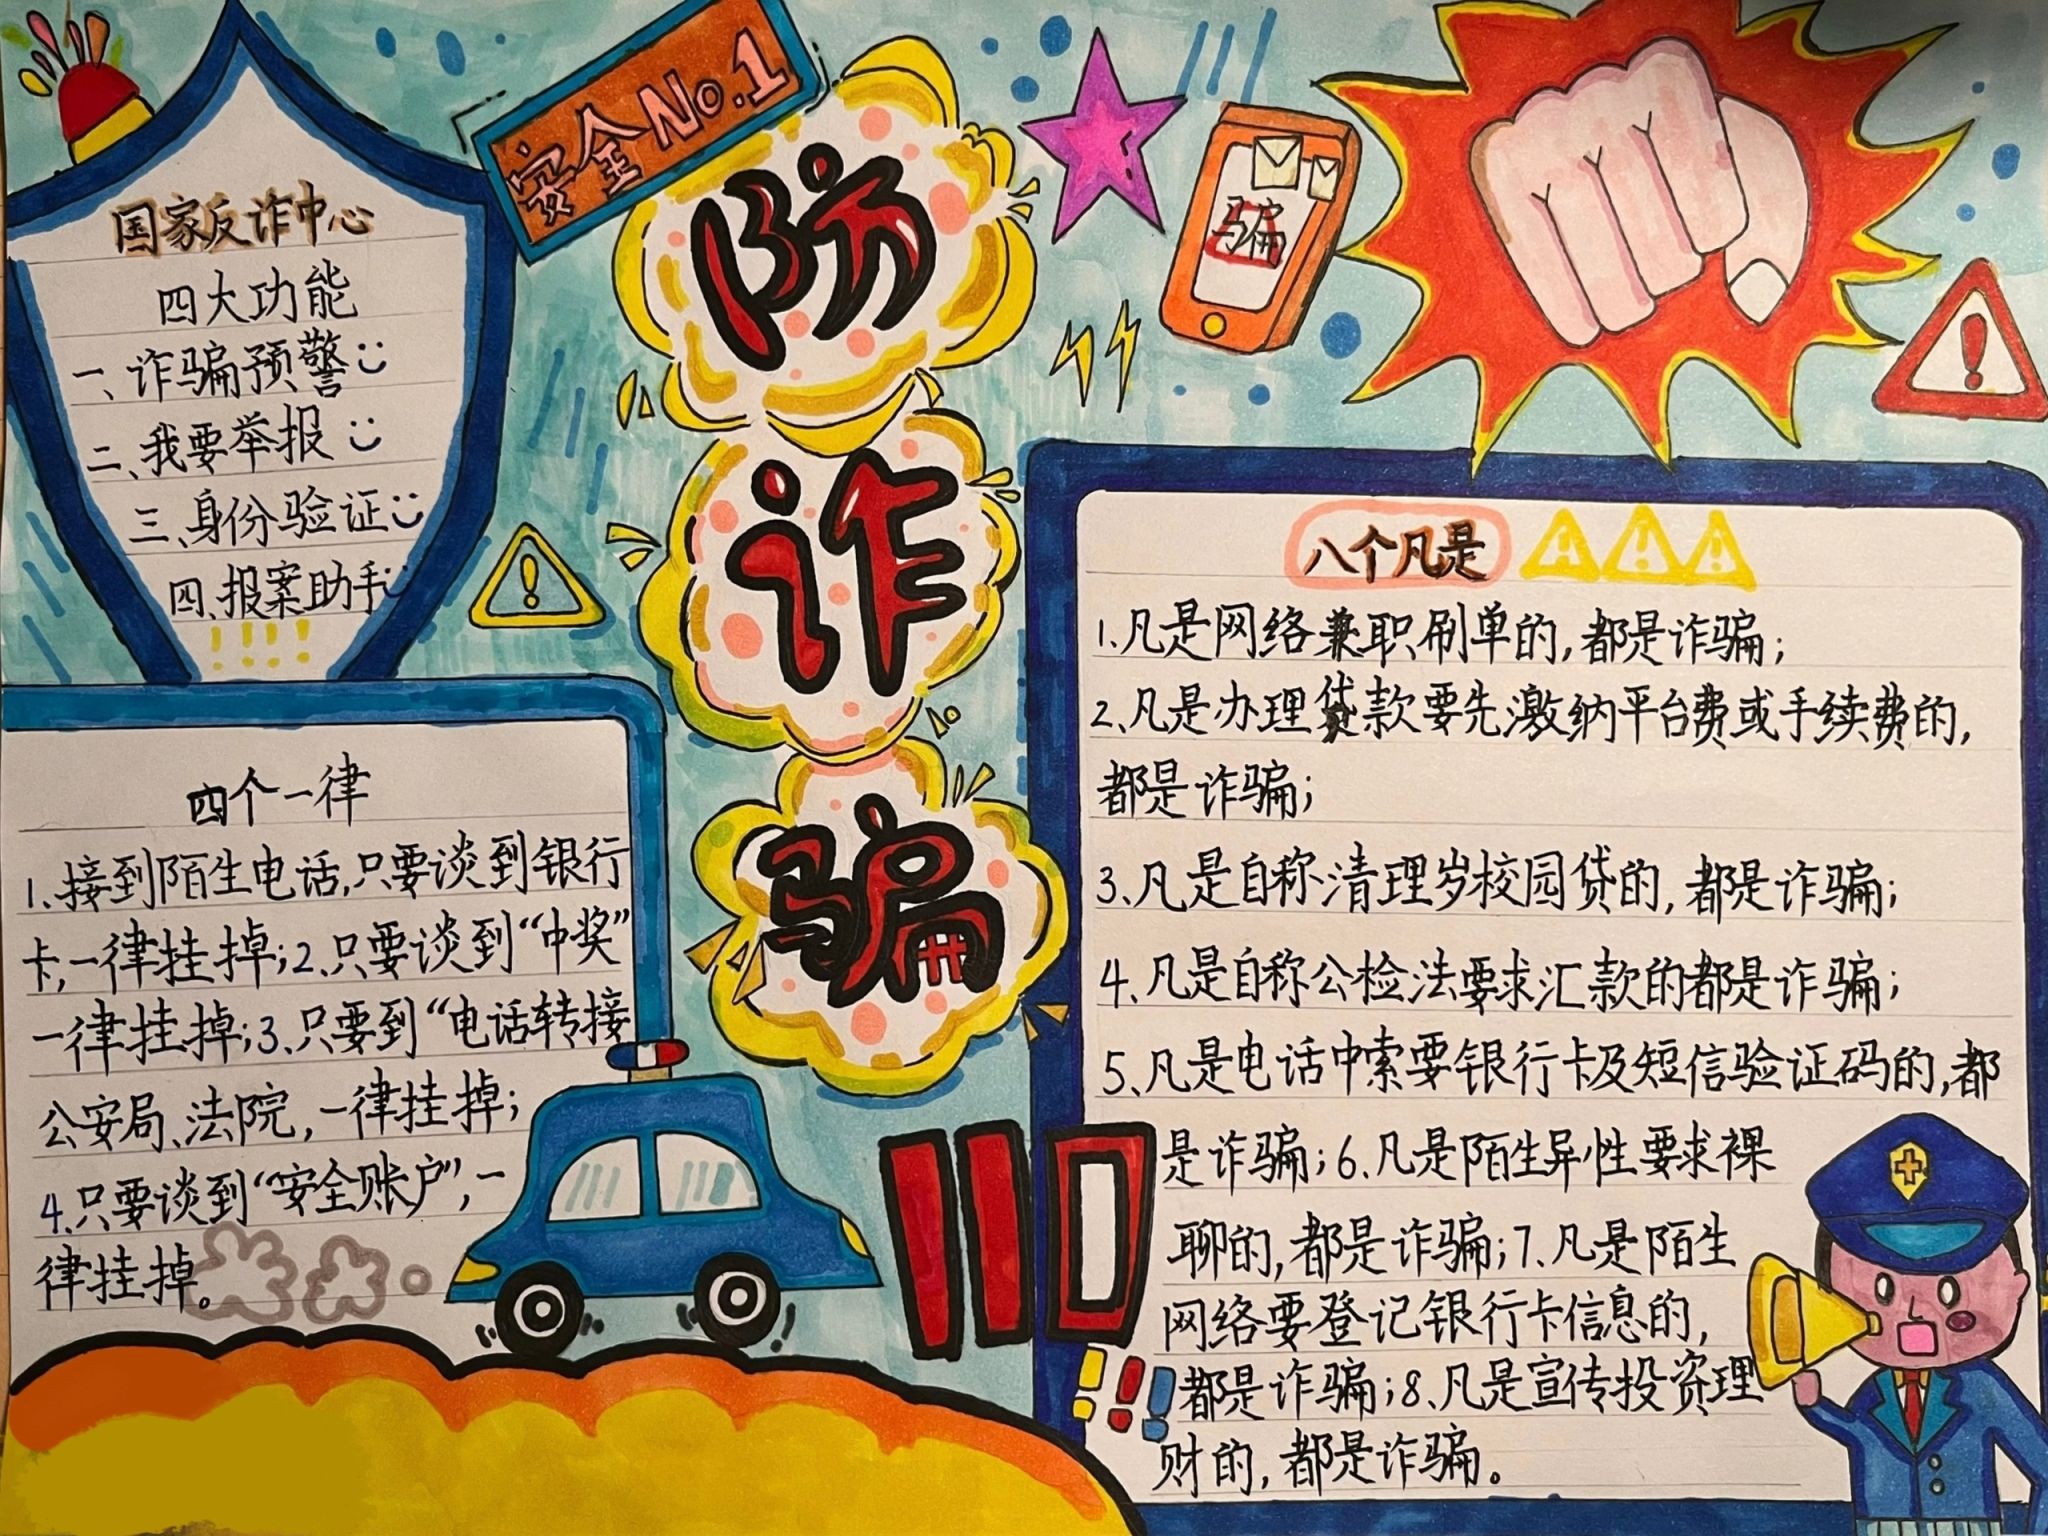 安全No.1
防
诈
骗
骗
国家反诈中心
四大功能
一、诈骗预警
二、我要举报
三、身份验证
四、报案助手
!!!!
四个一律
1、接到陌生电话,只要谈到银行
卡,一律挂掉;2、只要谈到“中奖”
一律挂掉;3、只要到“电话转接
公安局、法院,一律挂掉;
4、只要谈到“安全账户”,一
律挂掉。
110
!!!
八个凡是
1、凡是网络兼职刷单的,都是诈骗;
2、凡是办理贷款要先激纳平台费或手续费的,
都是诈骗;
3、凡是自称清理岁校园贷的,都是诈骗;
4、凡是自称公检法要求汇款的都是诈骗;
5、凡是电话中索要银行卡及短信验证码的,都
是诈骗;6、凡是陌生异性要求裸
聊的,都是诈骗;7、凡是陌生
网络要登记银行卡信息的,
都是诈骗;8、凡是宣传投资理
财的,都是诈骗。